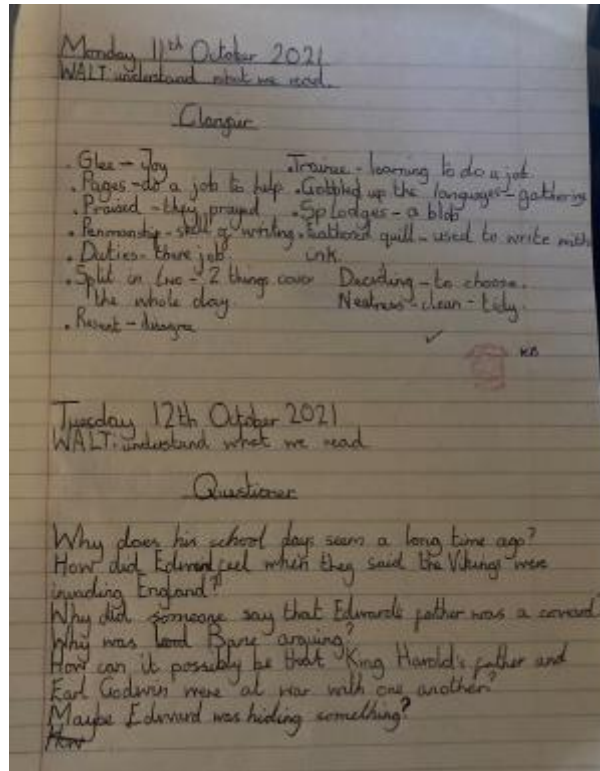 Monday 11th October 2021
WALT: understand what we read.
Clarifier
. Glee - Joy
. Pages - do a job to help
. Praised - they prayed
. Penmanship - skill of writing
. Duties - there job
. Split in two - 2 things cover
the whole day.
. Resent - disagree
. Trainee - learning to do a job.
. Gobbled up the languages - gathering
. Splodges - a blob
. Feathered quill - used to write with
ink.
Deciding - to choose.
Neatness - clean - tidy.
KB
Tuesday 12th October 2021
WALT: understand what we read
Questioner
Why does his school days seem a long time ago?
How did Edward feel when they said the Vikings were
invading England?
Why did someone say that Edwards father was a coward
Why was arguing?
How can it possibly be that King Harold's father and
Earl Godwin were at war with one another?
Maybe Edward was hiding something?
How